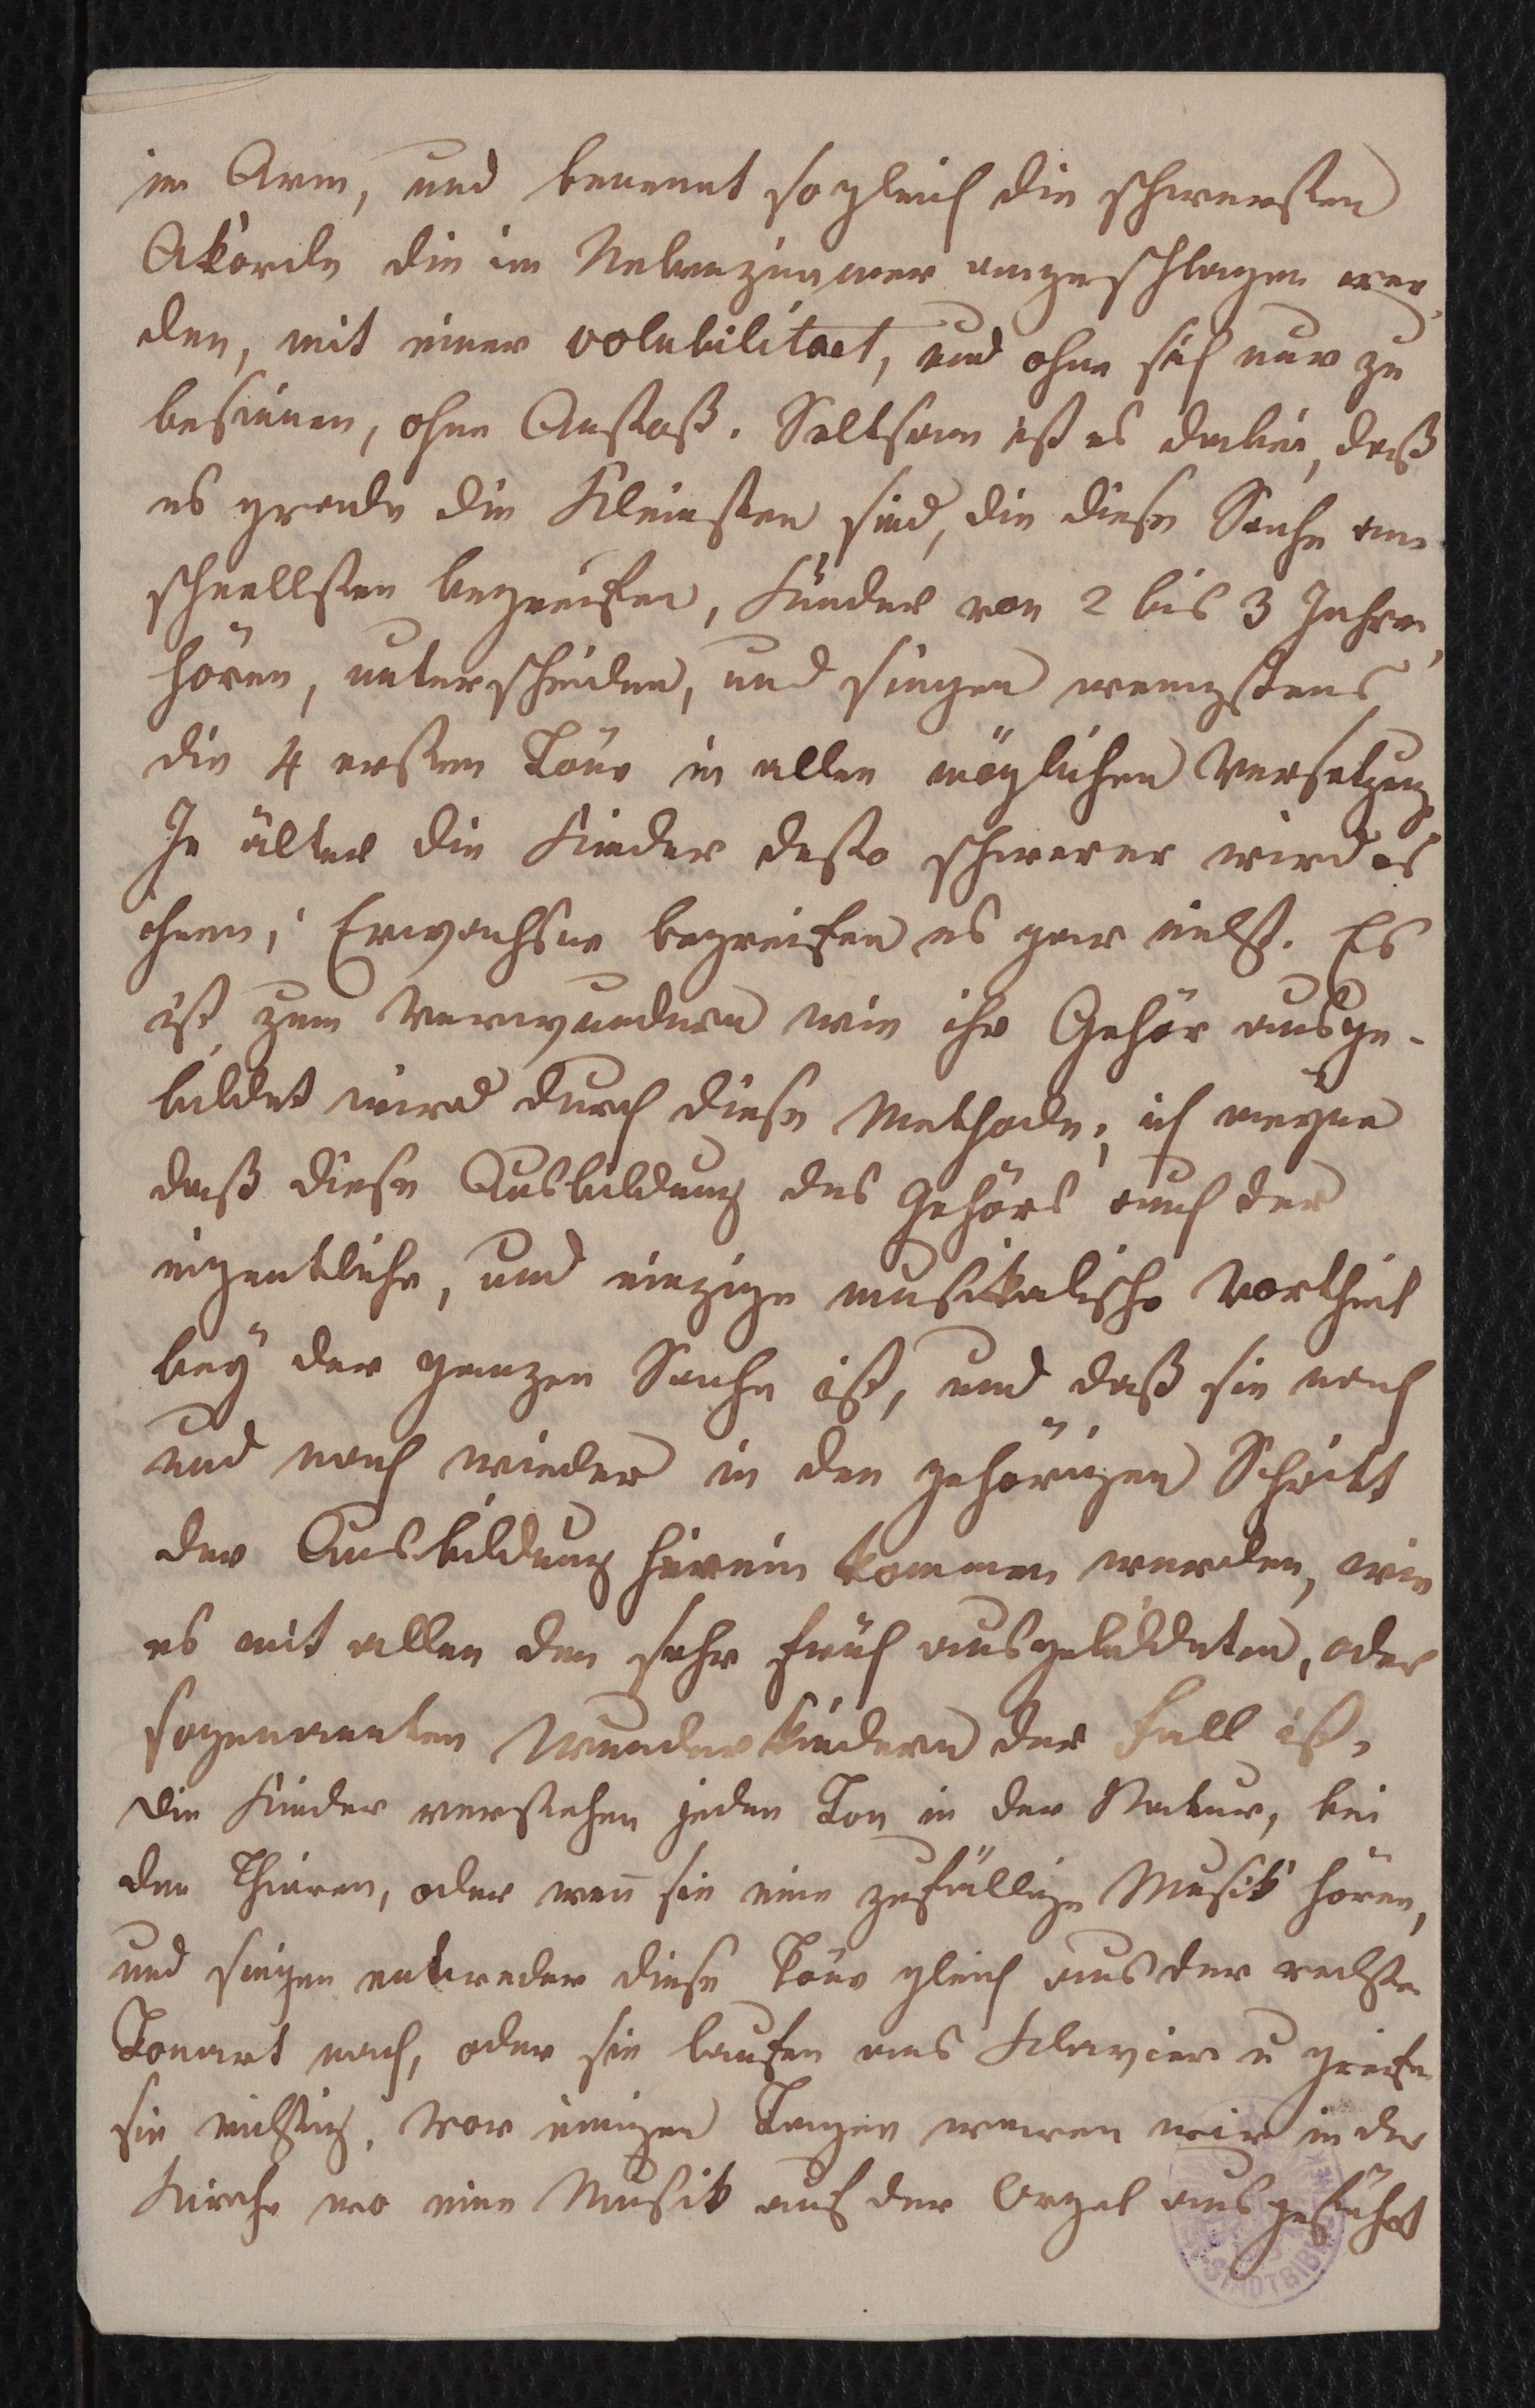 im Arm, und benennt sogleich die schwersten
Akorde die im Nebenzimmer angeschlagen wer¬
den, mit einer volubilitaet, und ohne sich nur zu
besinnen, ohne Anstoß. Seltsam ist es dabei, daß
es grade die Kleinsten sind, die diese Sache am
schnellsten begreifen, Kinder von 2 bis 3 Jahren,
hören, unterscheiden, und singen wenigstens
die 4 ersten Töne in allen möglichen Versetzung.
Je älter die Kinder desto schwerer wird es
ihnen; Erwachsne begreifen es gar nicht. Es
ist zum Verwundern wie ihr Gehör ausge-
bildet wird durch diese Methode; ich meyne
daß diese Ausbildung des Gehörs auch der
eigentliche, und einzige musikalische Vortheil
bey der ganzen Sache ist, und daß sie nach
und nach wieder in den gehörigen Schritt
der Ausbildung hinein kommen werden, wie
es mit allen den sehr früh ausgebildeten, oder
sogenannten Wunderkindern der Fall ist.
Die Kinder verstehen jeden Ton in der Natur, bei
den Thieren, oder weñ sie eine zufällige Musik hören,
und singen entweder diese Töne gleich aus der rechten
Tonart nach, oder sie laufen ans Klavier u greifen
sie richtig. Vor einigen Tagen waren wir in der
Kirche wo eine Musik auf der Orgel ausgeführt